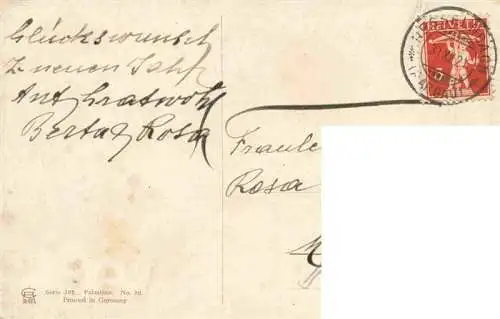 Glückswunsch
z. neuen Jahr
Ant. Gratwohl
Berta & Rosa
Fraule
Rosa
HELVETIA
Serie 302. Palmtree. No. 30.
Printed in Germany